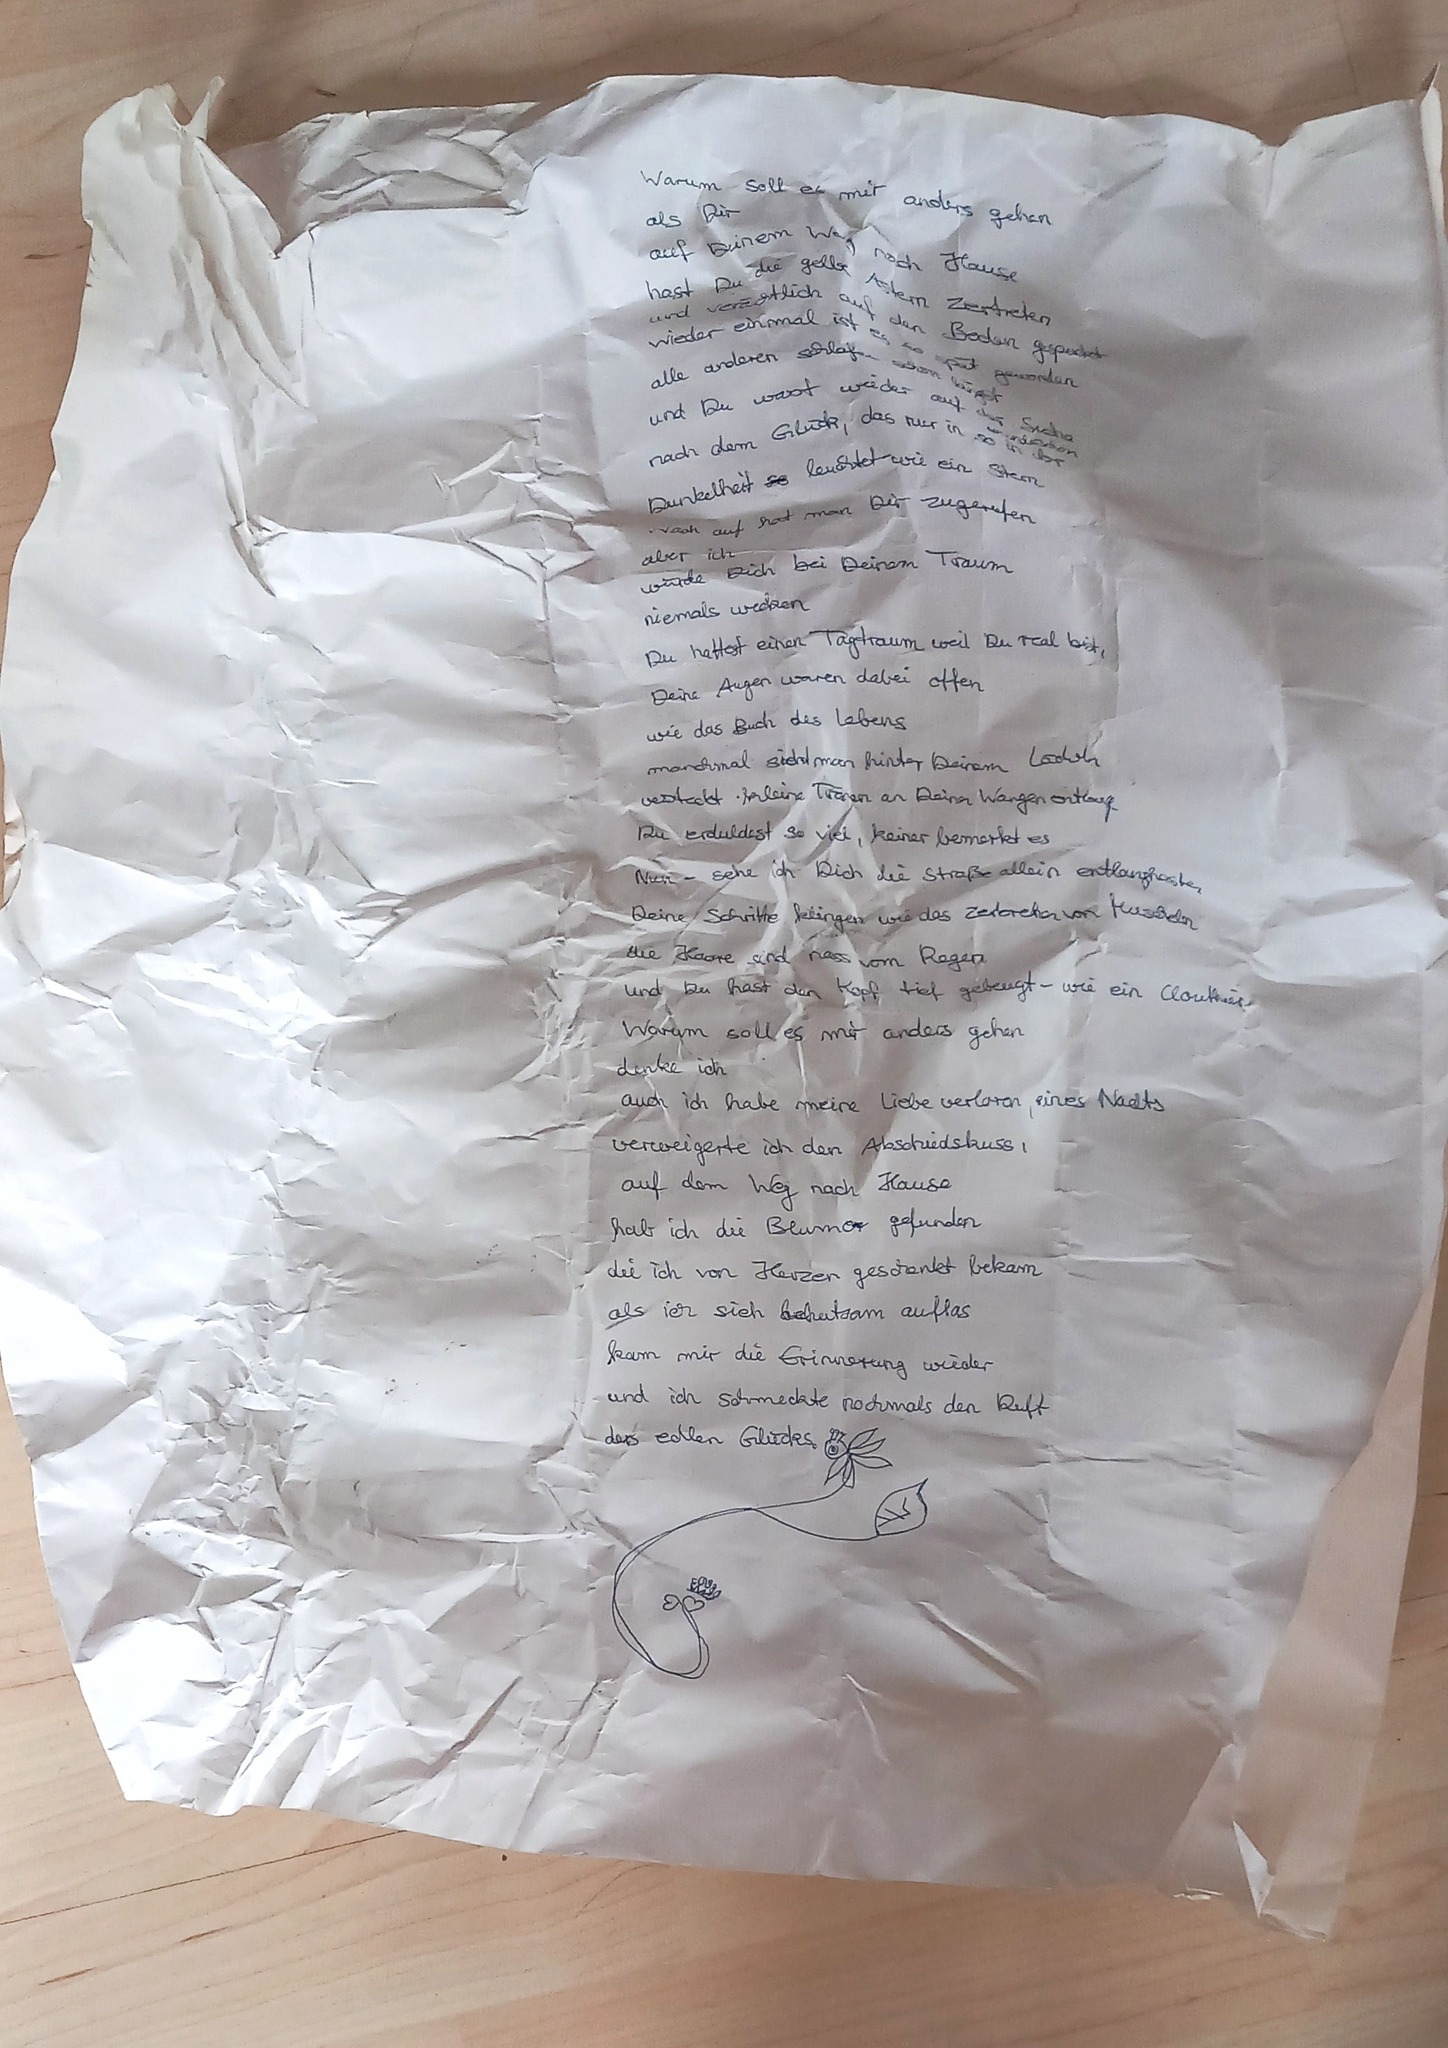 Warum soll es mir anders gehen
als Dir
auf Deinem Weg nach Hause
hast Du die gelbe Astern zertreten
und verächtlich auf den Boden gespuckt
wieder einmal ist es so spät geworden
alle anderen schlafen schon längst
und Du warst wieder auf der Suche
nach dem Glück, das nur in so in der
Dunkelheit leuchtet wie ein Stern
wach auf hat man Dir zugerufen
aber ich
würde Dich bei Deinem Traum
niemals wecken
Du hattest einen Tagtraum weil Du real bist,
Deine Augen waren dabei offen
wie das Buch des Lebens
manchmal sieht man hinter Deinem
versteckt kleine Tränen an Deinen Wangen entlang
Du erduldest so viel, keiner bemerkt es
Nun - sehe ich Dich die Straße allein
Deine Schritte klingen wie das zerbrechen von Muscheln
die Haare sind nass vom Regen
und Du hast den Kopf tief gebeugt - wie ein
Warum soll es mir anders gehen
denke ich
auch ich habe meine Liebe verloren, eines Nachts
verweigerte ich den Abschiedskuss,
auf dem Weg nach Hause
hab ich die Blume gefunden
die ich von Herzen geschenkt bekam
als ich sich behutsam auflas
kam mir die Erinnerung wieder
und ich schmeckte nochmals den Duft
des edlen Glücks.